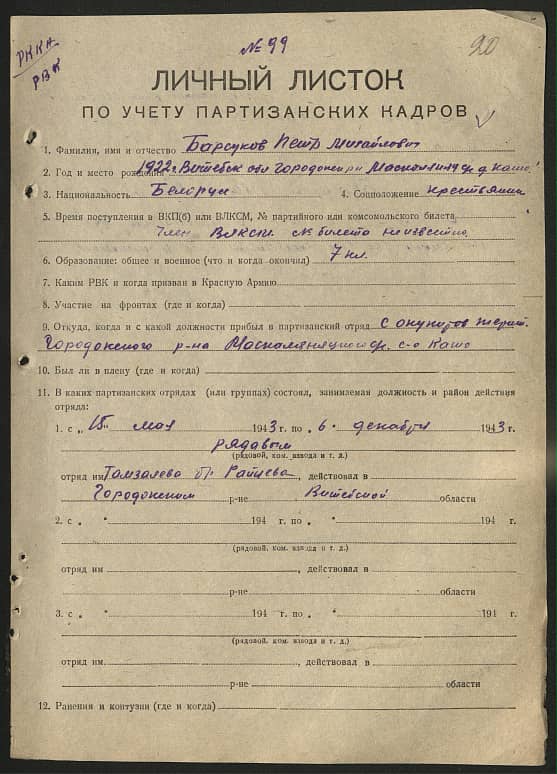 РККА
РВК
№ 99
20
ЛИЧНЫЙ ЛИСТОК
ПО УЧЕТУ ПАРТИЗАНСКИХ КАДРОВ
1. Фамилия, имя и отчество Барсуков Петр Михайлович
2. Год и место рождения 1922 г. Витебск обл Городокск р-н
3. Национальность Белорус 4. Соцположение крестьянин
5. Время поступления в ВКП(б) или ВЛКСМ, № партийного или комсомольского билета
Член ВЛКСМ № билета неизвестно
6. Образование: общее и военное (что и когда окончил) 7 кл.
7. Каким РВК и когда призван в Красную Армию
8. Участие на фронтах (где и когда)
9. Откуда, когда и с какой должности прибыл в партизанский отряд с окупиров терит.
Городокского р-на с-о
10. Был ли в плену (где и когда)
11. В каких партизанских отрядах (или группах) состоял, занимаемая должность и район действия
отряда:
1. с „15" мая 1943 г. по „6" декабря 1943 г.
рядавым
(рядовой, ком. взвода и т. д.)
отряд им бр. Райцева, действовал в
Городокском р-не Витебской области
2. с „ " 194 г. по „ " 194 г.
(рядовой, ком. взвода и т. д.)
отряд им , действовал в
р-не области
3. с „ " 194 г. по „ " 194 г.
(рядовой, ком. взвода и т. д.)
отряд им , действовал в
р-не области
12. Ранения и контузии (где и когда)